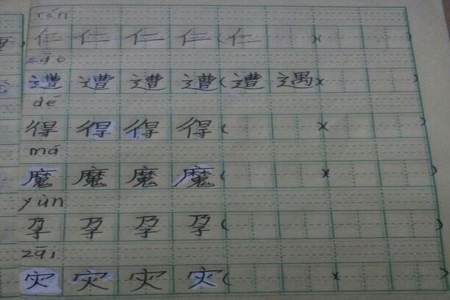 rén
仁 仁 仁 仁 ( 仁 )( )
zāo
遭 遭 遭 遭 ( 遭 遇 )( )
dé
得 得 得 得 ( )( )
mó
魔 魔 魔 魔 ( )( )
yùn
孕 孕 孕 孕 ( )
zāi
灾 灾 灾 灾 ( )( )